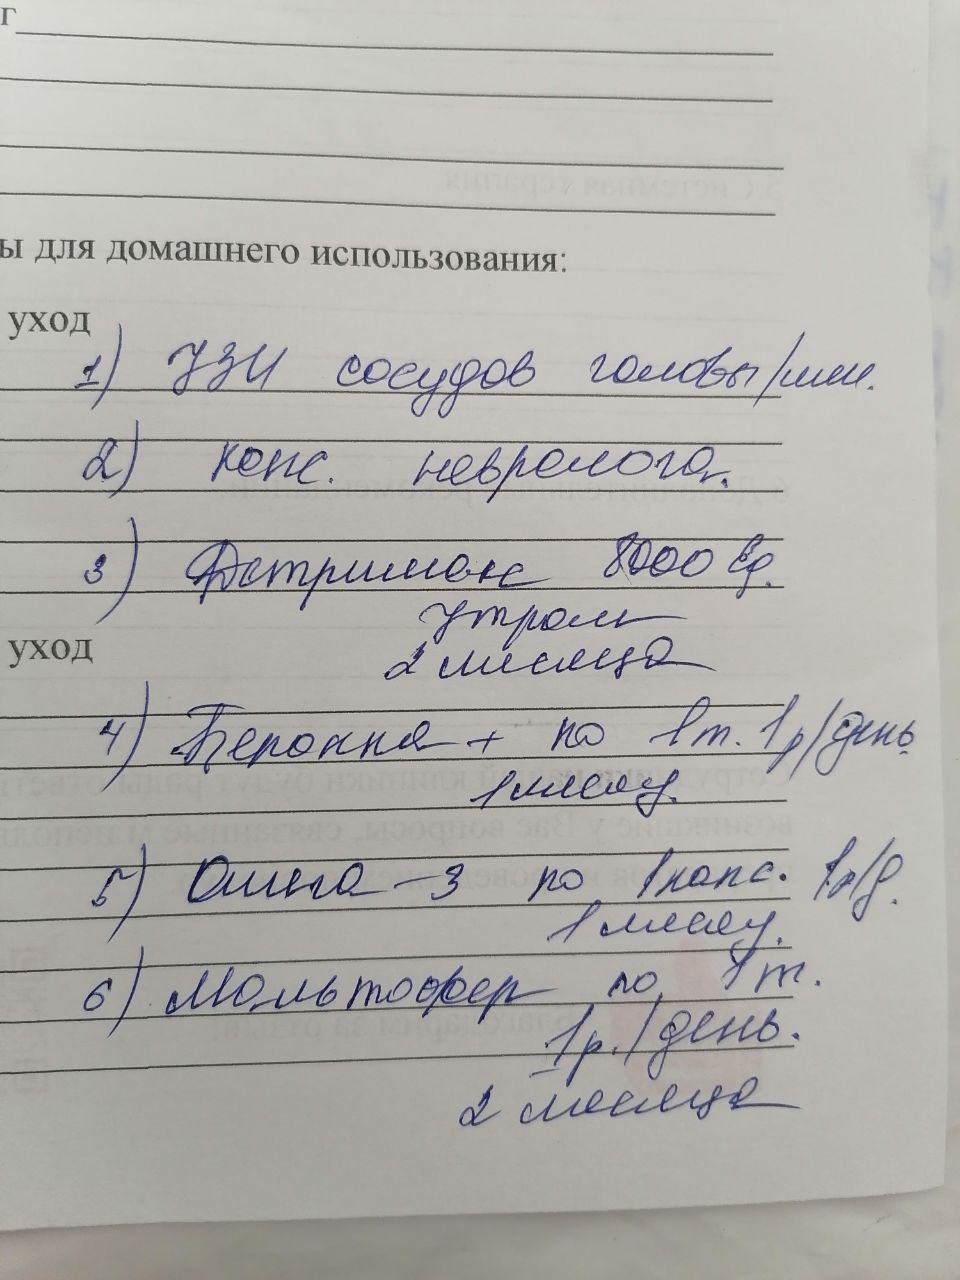 г
ы для домашнего использования:
уход
1) УЗИ сосудов головы/шеи.
2) конс. невролога.
3) Детримакс 8000 Ед.
утром
2 месяца
уход
4) + по 1т. 1р/день
1 месяц.
5) Омега-3 по 1 капс. 1р/д.
1 месяц.
6) Мальтофер по 1т.
1р./день.
2 месяца